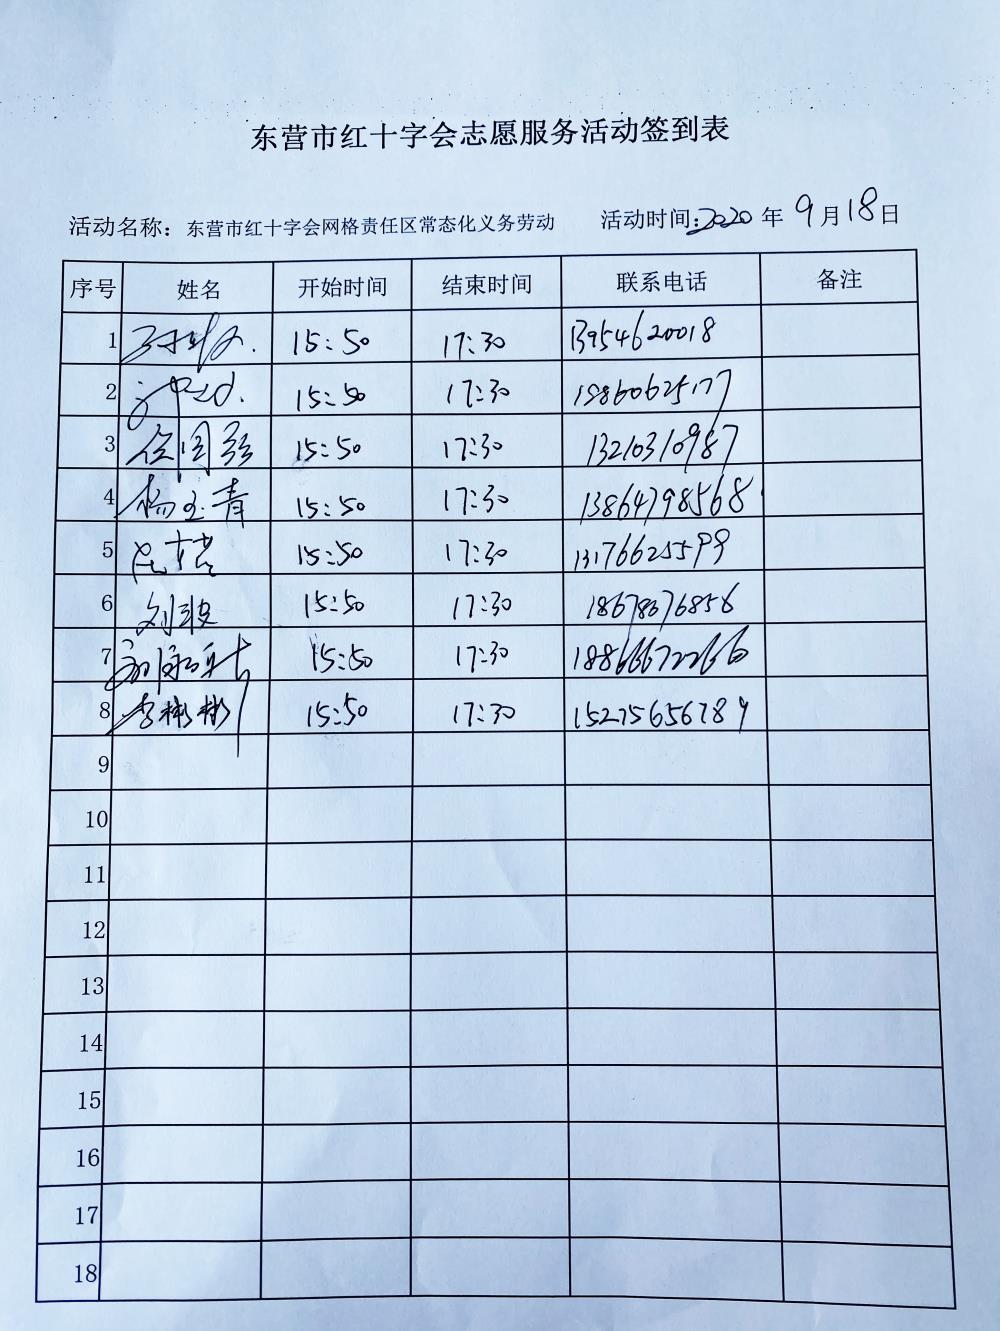 东营市红十字会志愿服务活动签到表
活动名称：东营市红十字会网格责任区常态化义务劳动 活动时间:2020年9月18日
序号 姓名 开始时间 结束时间 联系电话 备注
1 15:50 17:30 13954620018
2 15:50 17:30
3 徐国强 15:50 17:30 13210310987
4 杨玉青 15:50 17:30 13864798568
5 15:50 17:30 13176625599
6 刘波 15:50 17:30 18678676856
7 15:50 17:30 18866672266
8 李彬彬 15:50 17:30 15275656789
9
10
11
12
13
14
15
16
17
18